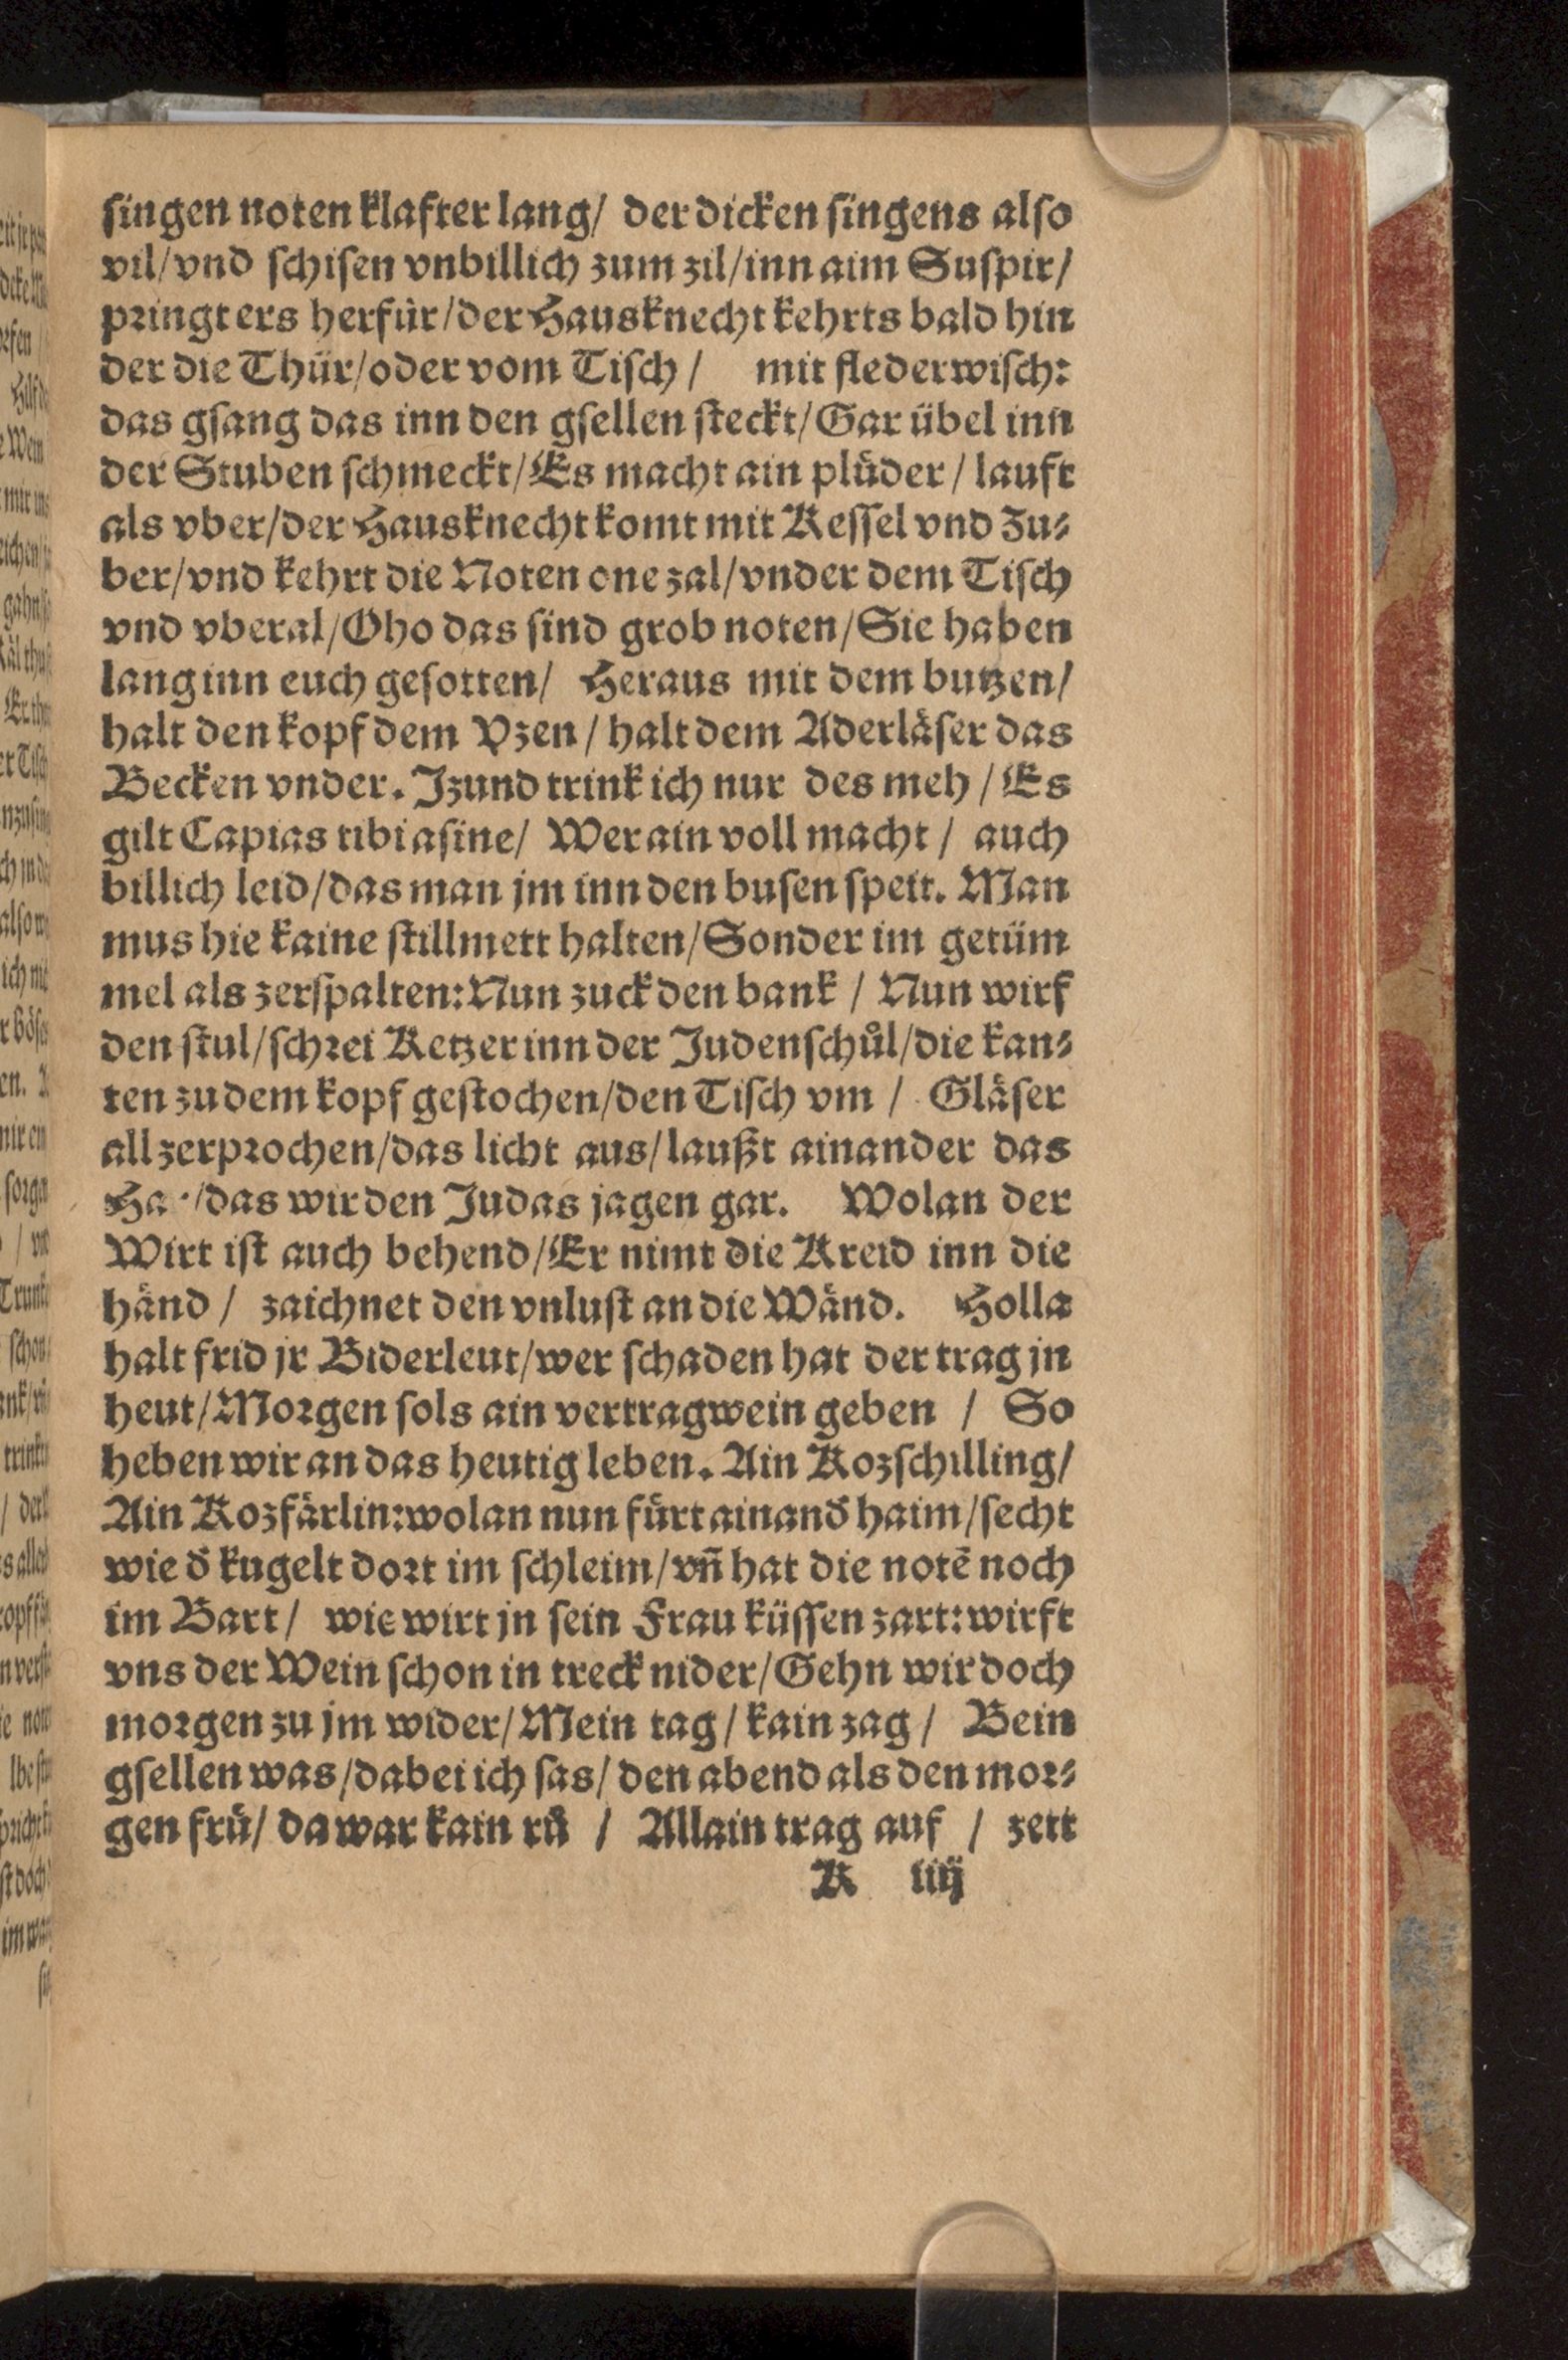 singen noten klafter lang/ der dicken singens also
vil/vnd schisen vnbillich zum zil/inn aim Suspir/
pringt ers herfür/der Hausknecht kehrts bald hin
der die Thür/oder vom Tisch / mit flederwisch:
das gsang das inn den gsellen steckt/Gar übel inn
der Stuben schmeckt/Es macht ain plůder / lauft
als vber/der Hausknecht komt mit Kessel vnd Zu⸗
ber/vnd kehrt die Noten one zal/vnder dem Tisch
vnd vberal/Oho das sind grob noten/Sie haben
lang inn euch gesotten/ Heraus mit dem butzen/
halt den kopf dem Vzen / halt dem Aderläser das
Becken vnder. Jzund trink ich nur des meh / Es
gilt Capias tibi asine/ Wer ain voll macht / auch
billich leid/das man jm inn den busen speit. Man
mus hie kaine stillmett halten/Sonder im getüm
mel als zerspalten: Nun zuck den bank / Nun wirf
den stul/schrei Ketzer inn der Judenschůl/die kan⸗
ten zu dem kopf gestochen/den Tisch vm / Gläser
all zerprochen/das licht aus/laußt ainander das
Ha /das wir den Judas jagen gar. Wolan der
Wirt ist auch behend/Er nimt die Kreid inn die
händ / zaichnet den vnlust an die Wänd. Holla
halt frid jr Biderleut/wer schaden hat der trag jn
heut/Morgen sols ain vertragwein geben / So
heben wir an das heutig leben. Ain Kozschilling/
Ain Kozfärlin: wolan nun fürt ainand̃ haim/secht
wie d̃ kugelt dort im schleim/vn̄ hat die notē noch
im Bart / wie wirt jn sein Frau küssen zart: wirft
vns der Wein schon in treck nider/Gehn wir doch
morgen zu jm wider/Mein tag / kain zag / Bein
gsellen was/dabei ich sas/ den abend als den mor⸗
gen frü/ da war kain rů / Allain trag auf / zett
K iiij